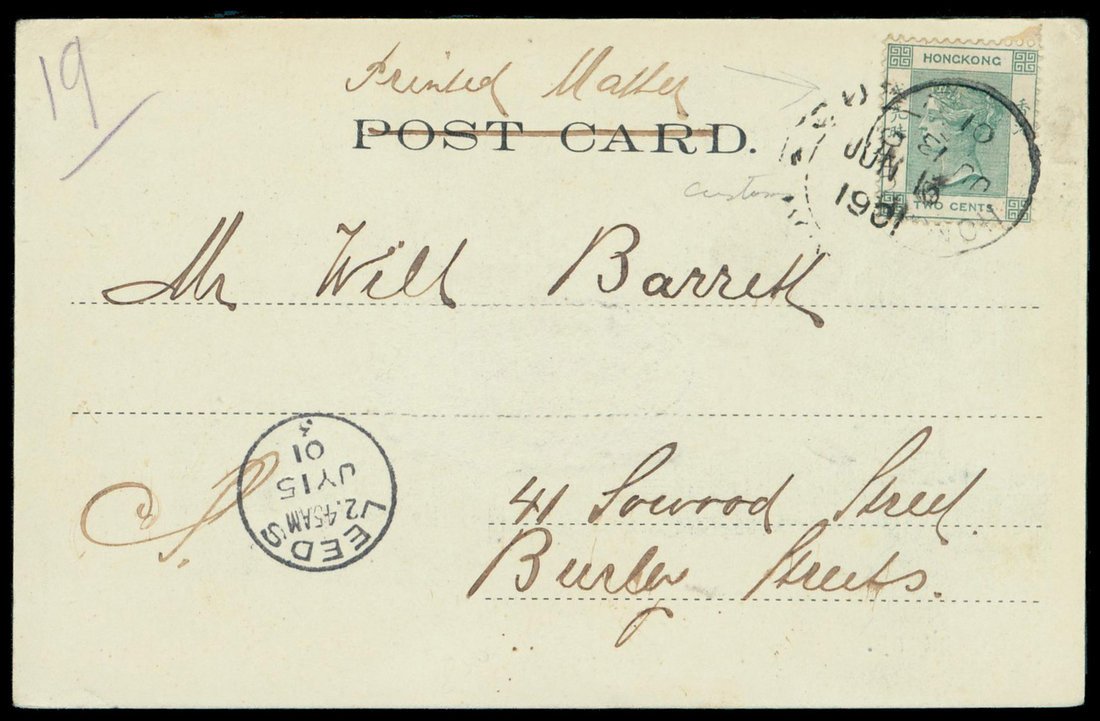 19
Printed Matter
POST CARD.
HONGKONG
TWO CENTS
JUN
1901
custom
Mr Will Barrett
3
01
JY 15
2.45AM
LEEDS
41 Sowood Street
Burley Streets.